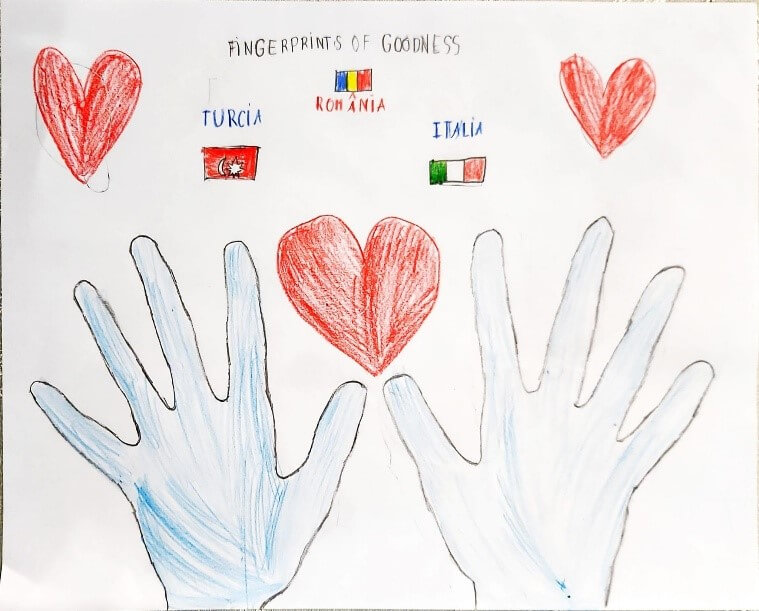 FINGERPRINTS OF GOODNESS
ROMÂNIA
TURCIA
ITALIA